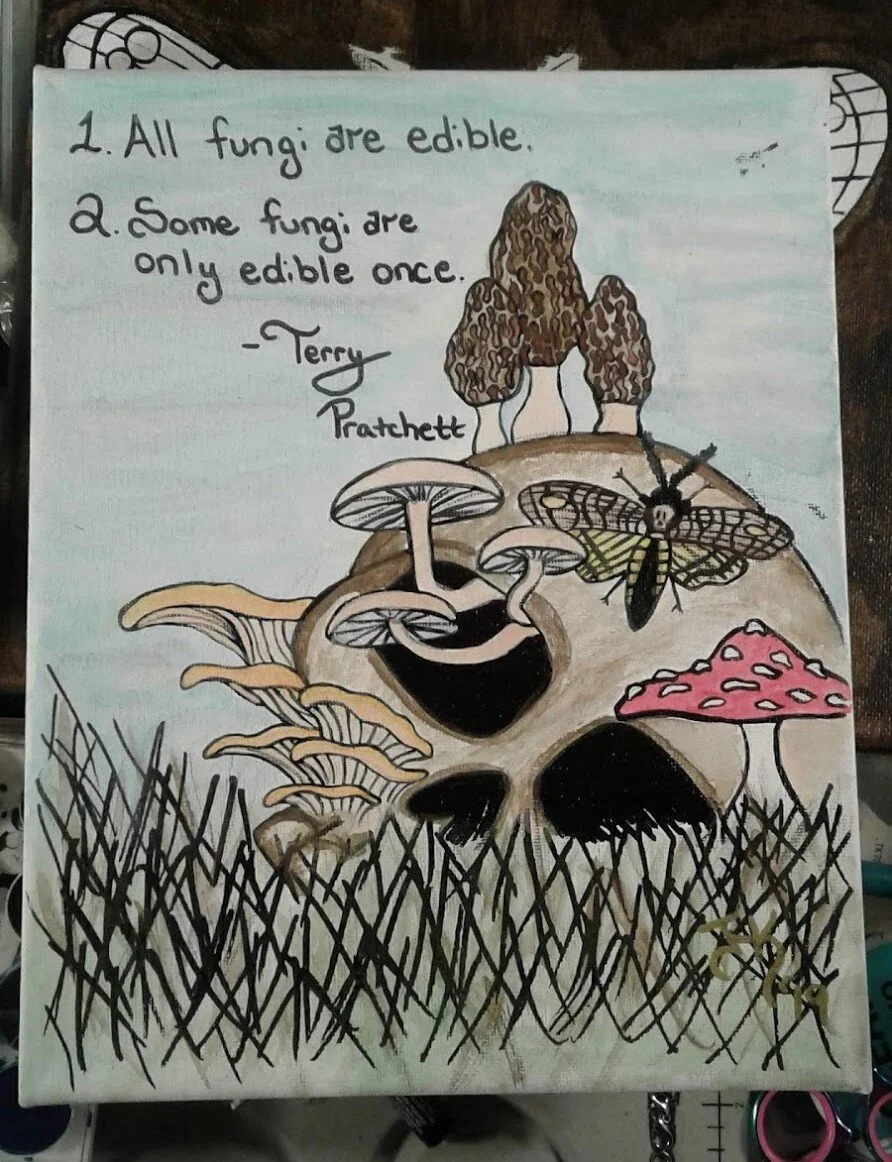 1. All fungi are edible.
2. Some fungi are
only edible once.
-Terry
Pratchett